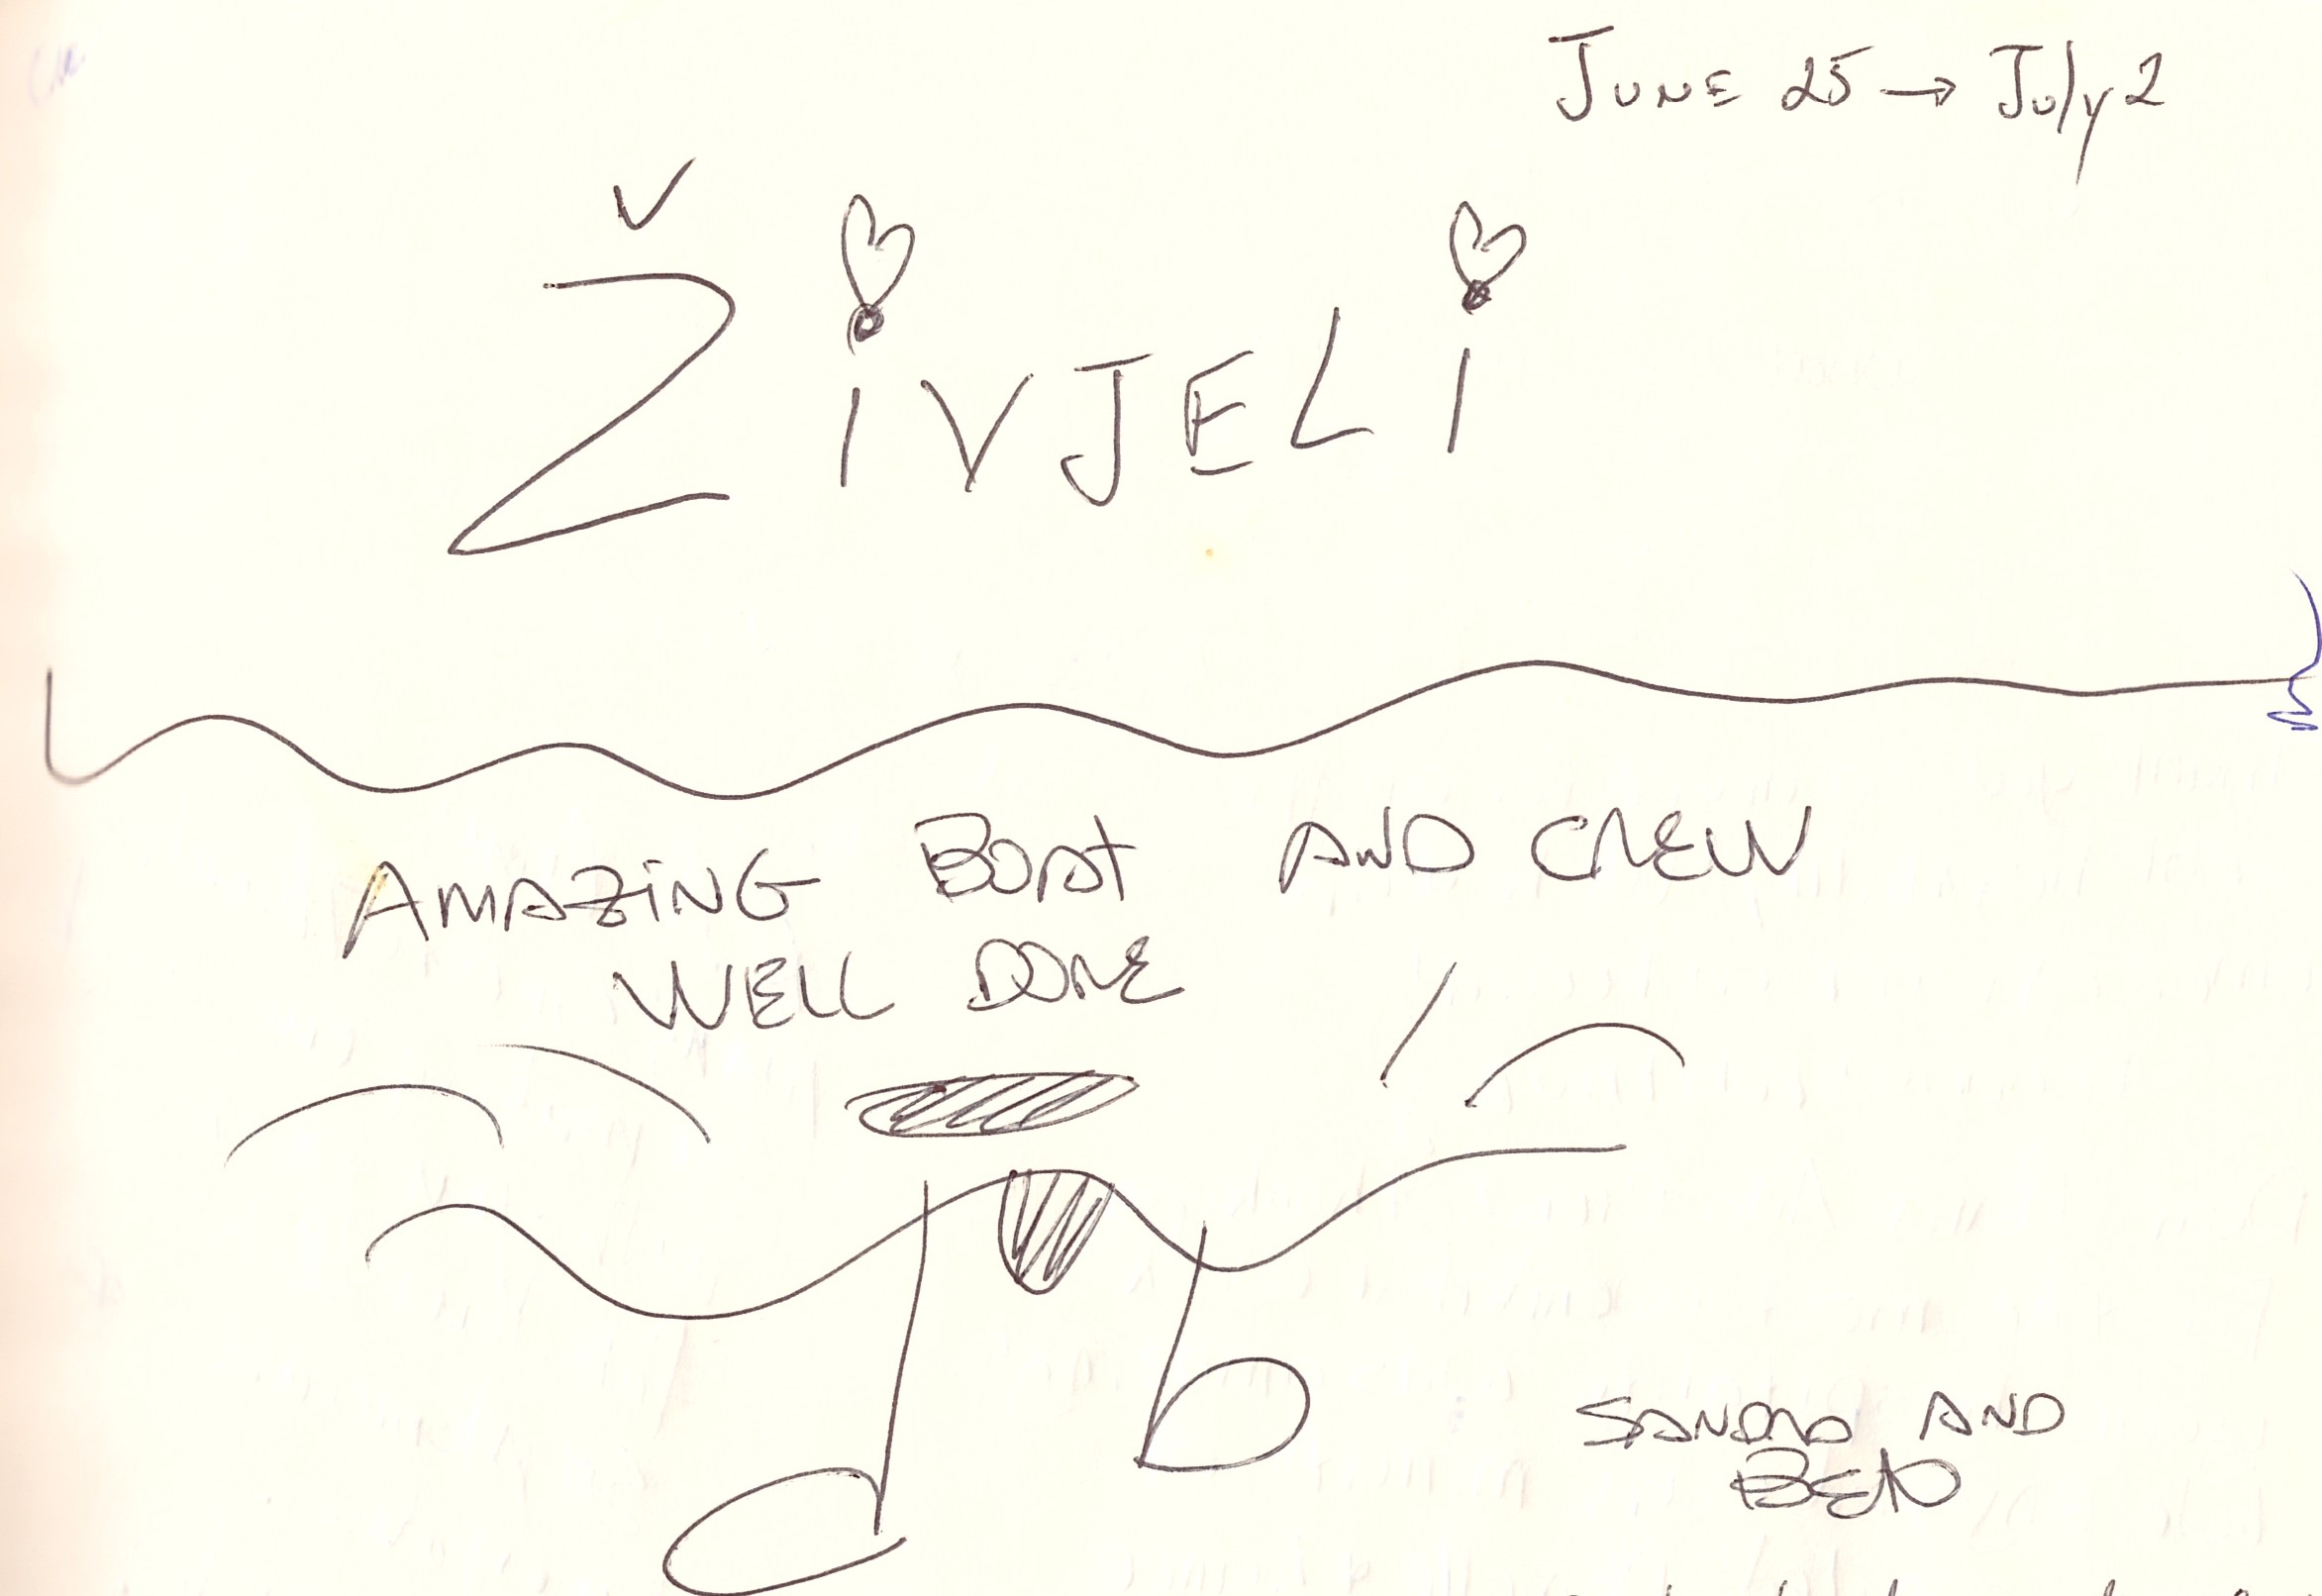 JUNE 25 → July 2
ŽiVJELi
AMAZiNG BOAT AND CREW
WELL DONE
SANDRA AND